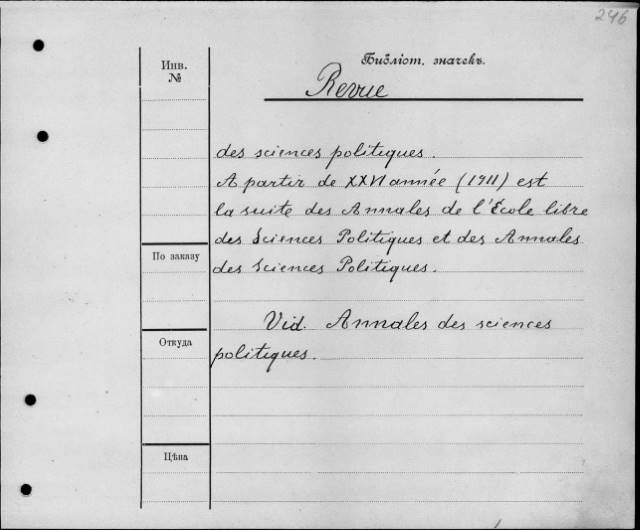 246
Инв.
№
Библіот. значекъ.
Revue
des sciences politiques.
A partir de XXVI année (1911) est
la suite des Annales de l'École libre
des Sciences Politiques et des Annales
По заказу
des Sciences Politiques.
Vid. Annales des sciences
Откуда
politiques.
Цѣна